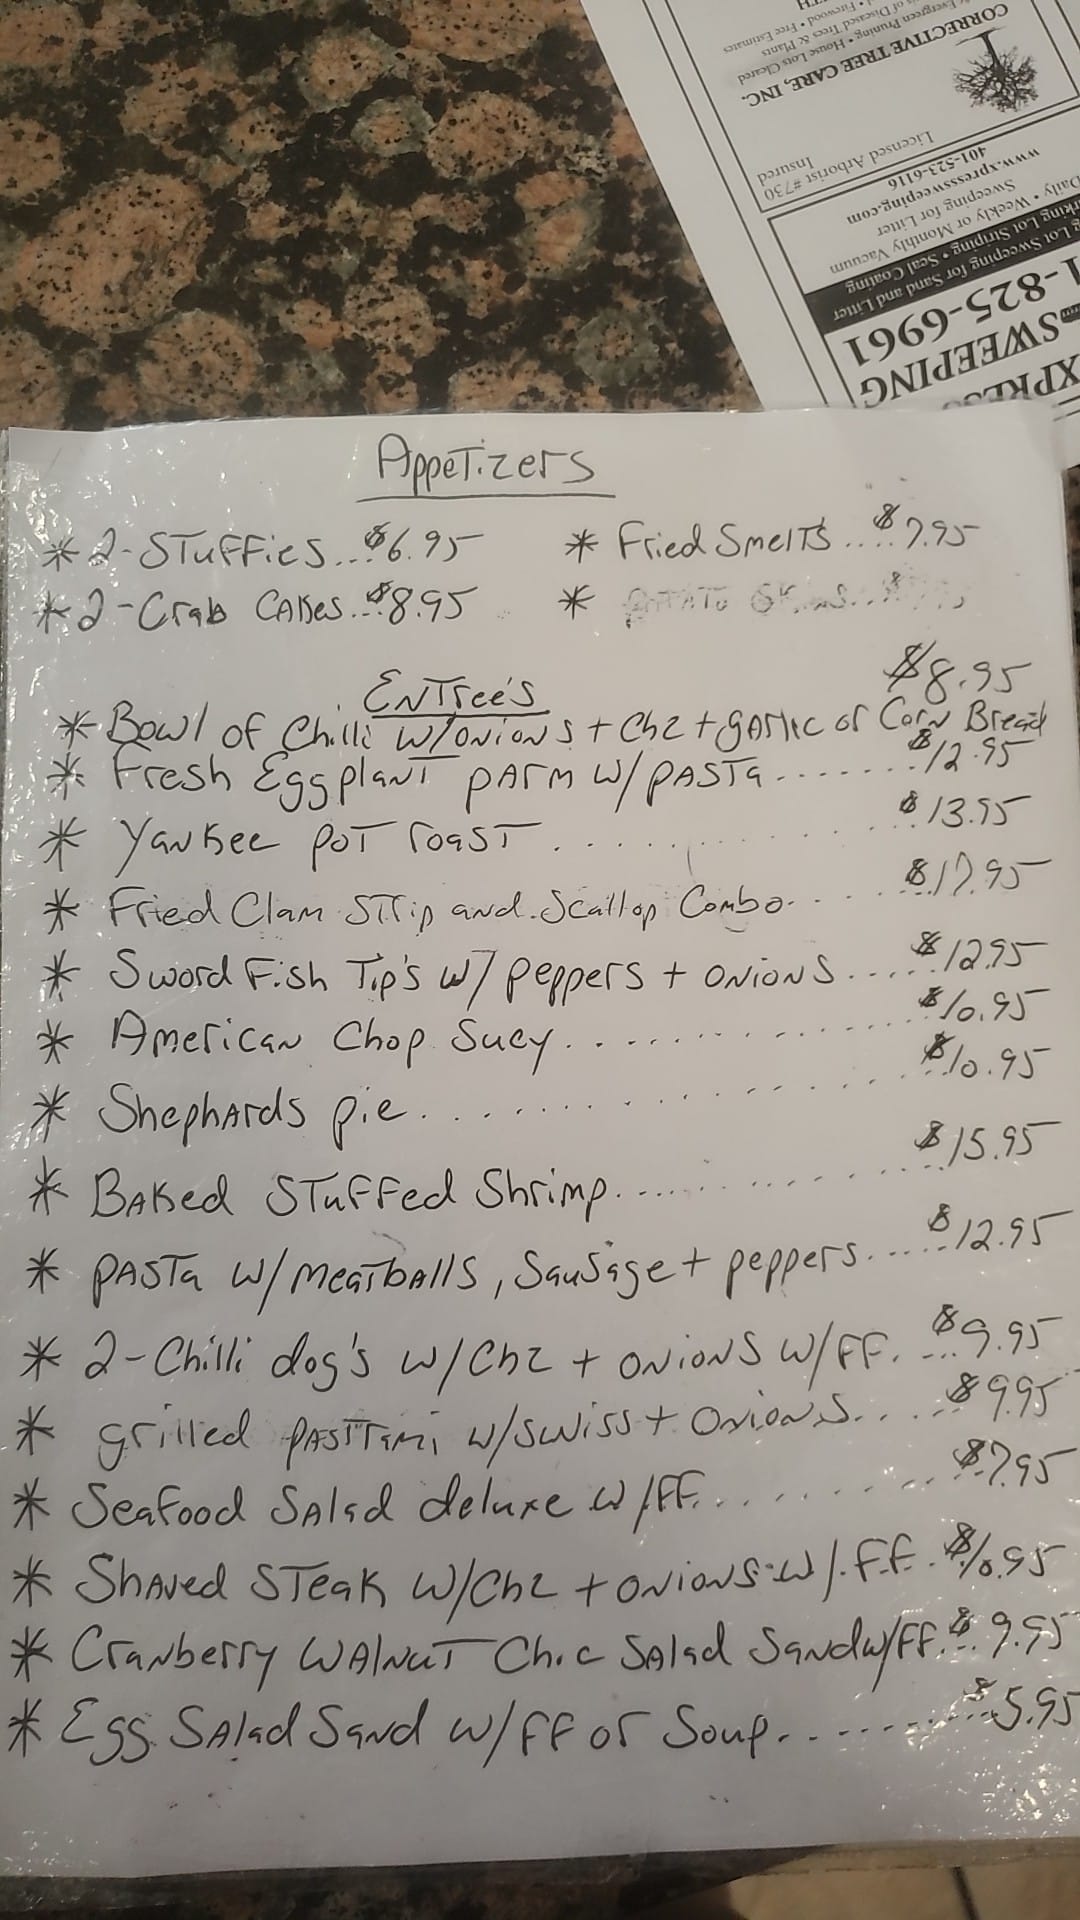 CORRECTIVE TREE CARE, INC.
Evergreen Pruning • House Lots Cleared
of Diseased Trees & Plants
Firewood • Free Estimates
Licensed Arborist #730
Insured
401-523-6116
www.xpresssweeping.com
Daily • Weekly or Monthly Vacuum
Sweeping for Litter
Lot Sweeping for Sand and Litter
Lot Striping • Seal Coating
1-825-6961
SWEEPING
Appetizers
* 2-Stuffies... $6.95
* Fried Smelts .... $7.95
* 2-Crab Cakes... $8.95
*
Entree's
$8.95
* Bowl of Chilli w/onions + chz + garlic or Corn Bread
* Fresh Eggplant parm w/pasta....... $12.95
* Yankee pot roast ......... $13.95
* Fried Clam Strip and Scallop Combo..... $17.95
* Sword Fish Tip's w/ peppers + onions..... $12.95
* American Chop Suey........... $10.95
* Shephards pie........... $10.95
* Baked Stuffed Shrimp........... $15.95
* pasta w/meatballs, Sausage + peppers..... $12.95
* 2-Chilli dog's w/Chz + onions w/FF.... $9.95
* grilled pasttami w/swiss + Onions..... $9.95
* Seafood Salad deluxe w/FF......... $7.95
* Shaved Steak w/Chz + onions w/ F.F. $10.95
* Cranberry Walnut Chic Salad Sandw/FF... $9.95
* Egg Salad Sand w/FF or Soup......... $5.95